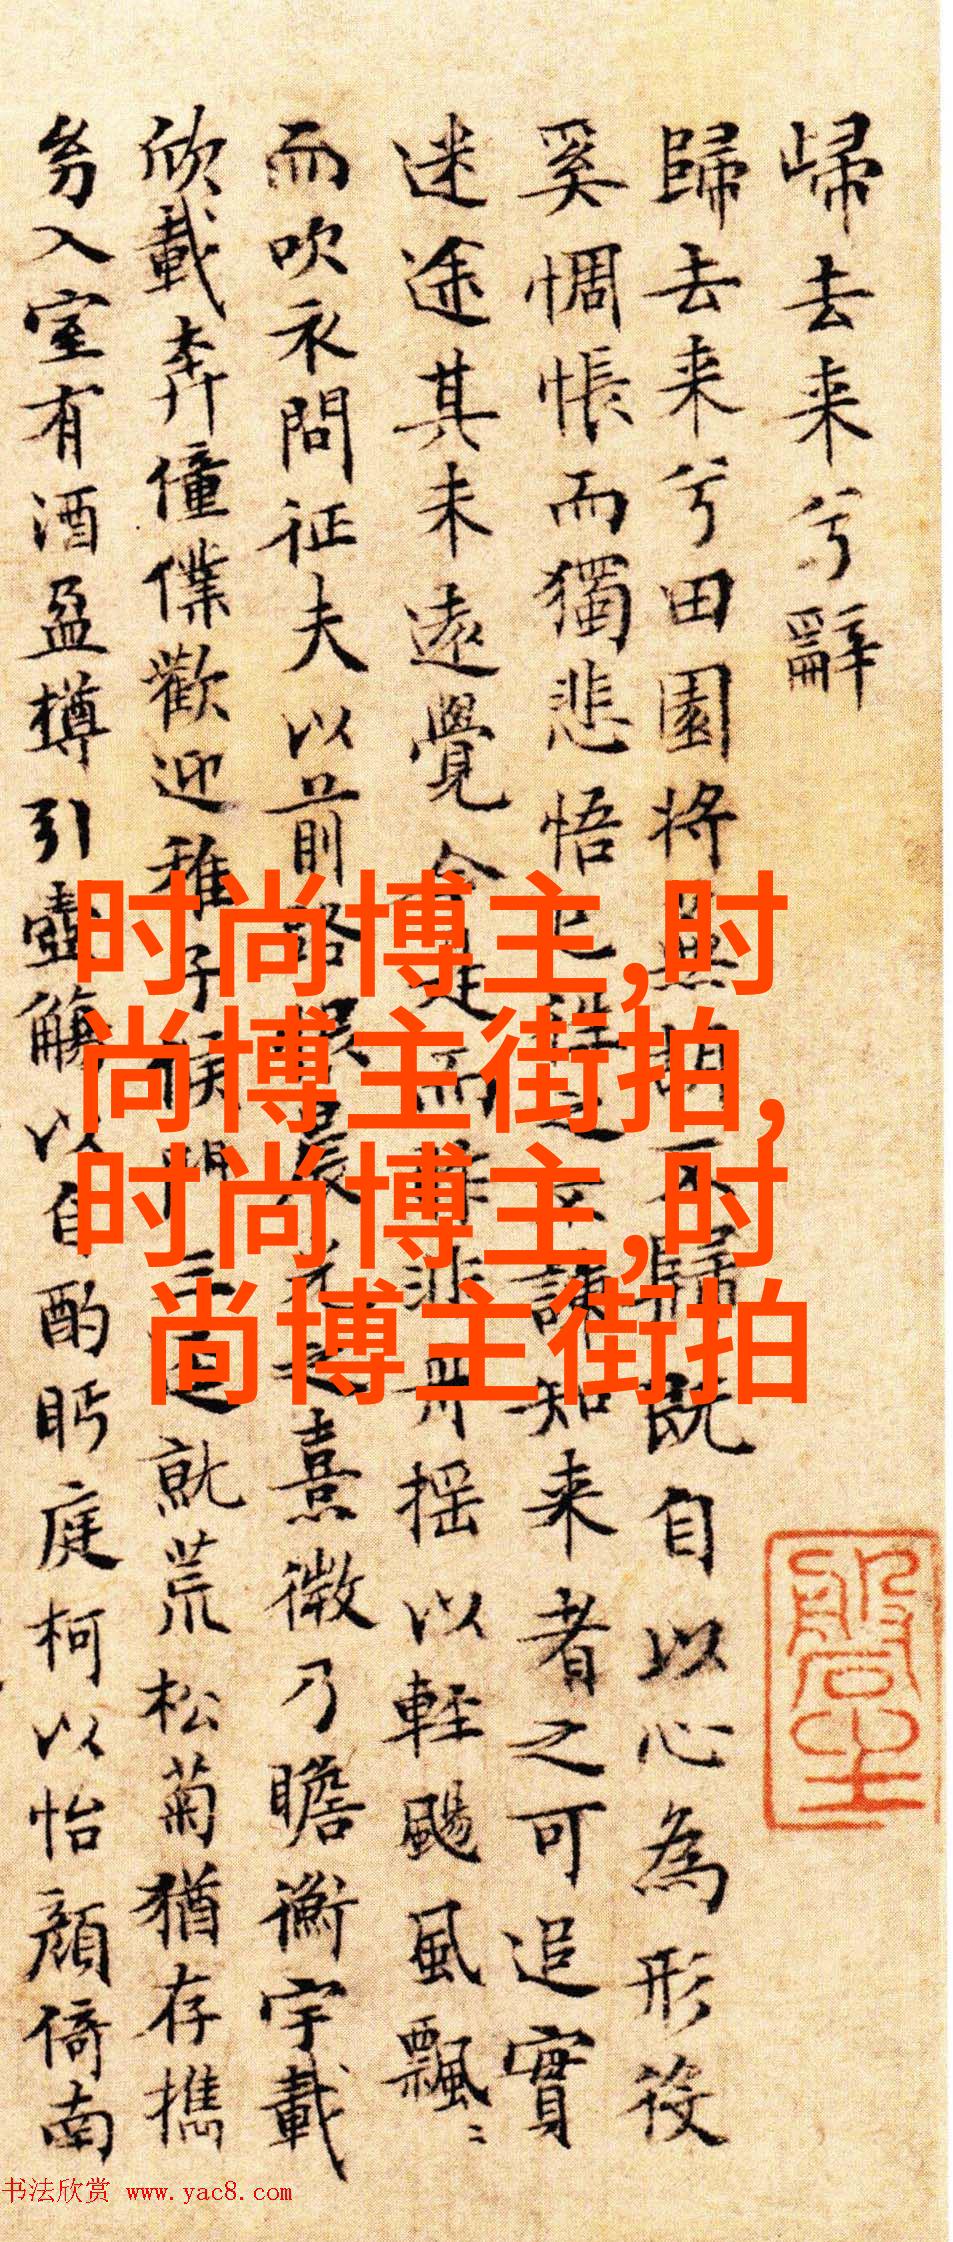 歸去来兮辭
歸去来兮田園将蕪胡不歸既自以心為形役
奚惆悵而獨悲悟已往之不諫知来者之可追實
迷途其未遠覺今是而昨非舟摇以輕颺風飄〻
而吹衣問征夫以前路恨晨光之熹微乃瞻衡宇載
欣載奔僮僕歡迎稚子候門三逕就荒松菊猶存携
幼入室有酒盈樽引壺觴以自酌眄庭柯以怡顔倚南
时尚博主,时
尚博主街拍,
时尚博主,时
尚博主街拍
书法欣赏 www.yac8.com